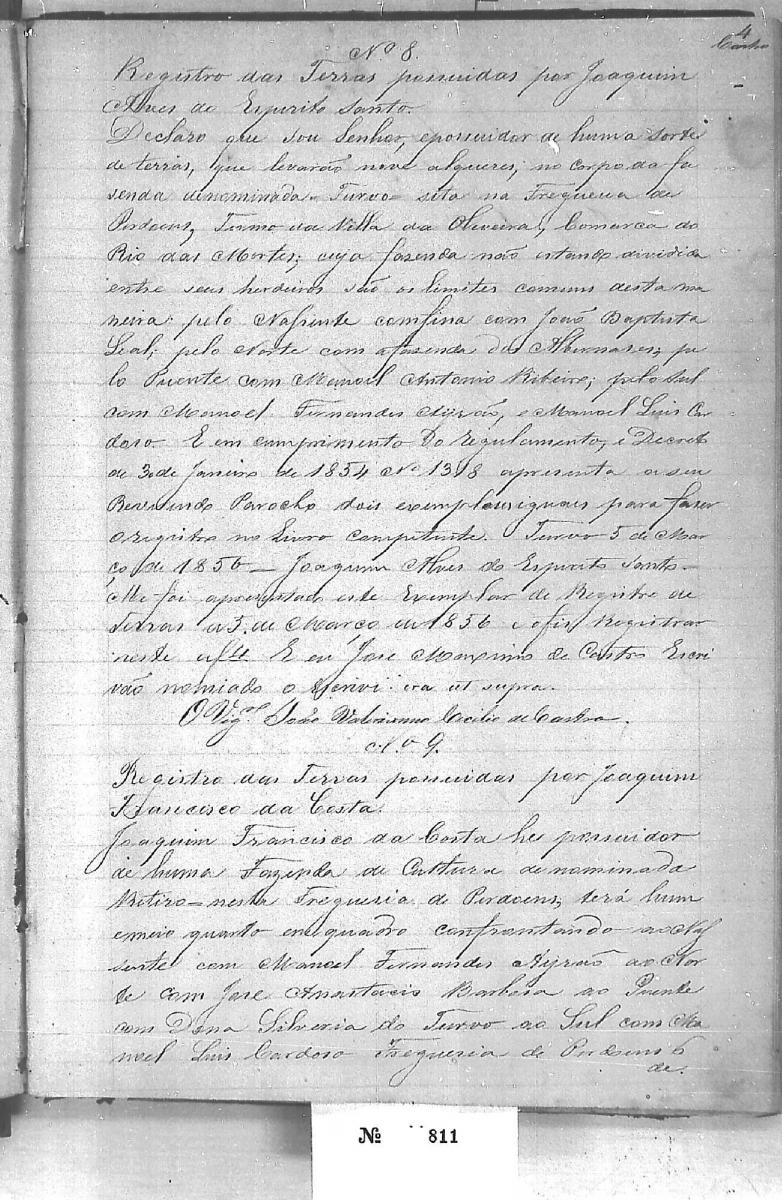 4
Castro
Nº 8.
Registro das Terras possuidas por Joaquim
Alves do Espirito Santo.
Declaro que sou Senhor, e possuidor de huma sorte
de terras, que levarão nove alqueres; no corpo da fa
senda denominada = Turvo = sita na Freguesia de
Perdoens, Termo da Villa da Oliveira, Comarca do
Rio das Mortes; cuja fazenda não estando dividida
entre seus herdeiros são os limites comuns desta ma
neira: pelo Nascente comfina com João Baptista
Leal; pelo Norte com a fasenda dos Abernases; pe
lo Puente com Manoel Antonio Ribeiro; pelo Sul
com Manoel Fernandes Airão, e Manoel Luis Car
doso. E em cumprimento do regulamento, e Decreto
de 30 de Janeiro de 1854 Nº 1318 apresenta a seu
Reverendo Parocho dois exemplares iguais para faser
o registro no Livro competente. Turvo 5 de Mar
ço de 1856 _ Joaquim Alves do Espirito Santo _
Me foi apresentado este Exemplar de Registro de
Terras a 5 de Março de 1856 e o fis Registrar
neste Eu Jose Maximo de Castro Escri
vão nomiado o escrivi era ut supra.
O Vigrº João Cecilio de Castro.
Nº 9.
Registro das Terras possuidas por Joaquim
Francisco da Costa.
Joaquim Francisco da Costa he possuidor
de huma Fazenda de Cultura denominada
Retiro = nesta Freguesia de Perdoens, terá hum
e meio quarto em quadro confrontando ao Nas
sente com Manoel Fernandes Ayrão ao Nor
te com Jose Anastacio Barbosa ao Puente
com Dona Silveria do Turvo ao Sul com Ma
noel Luis Cardoso Freguesia de Perdoens 6
de.
Nº 811